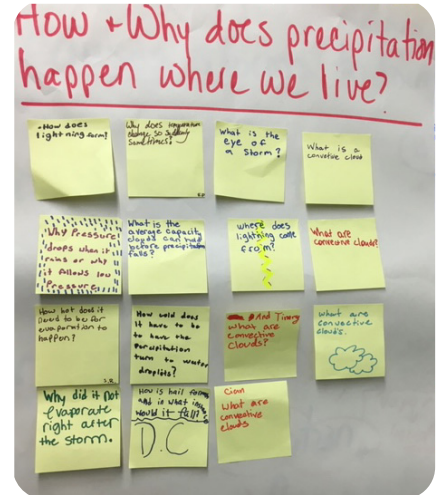 How + Why does precipitation
happen where we live?
How does
lightning form?
Why does temperature
change so suddenly
sometimes?
What is the
eye of
a storm?
What is a
convective cloud
Why Pressure
drops when it
rains or why
it follows low
Pressure
What is the
average capacity
clouds can hold
before precipitation
falls?
where does
lightning come
from?
What are
convective clouds?
How hot does it
need to be for
evaporation to
happen?
S.R.
How cold does
it have to be
to have the
percipitation
turn to water
droplets?
And Timery
what are
convective
clouds?
what are
convective
clouds.
Why did it not
evaporate
right after
the storm.
How is hail formed
and in what
would it fall?
D.C
Cian
What are
convective
clouds